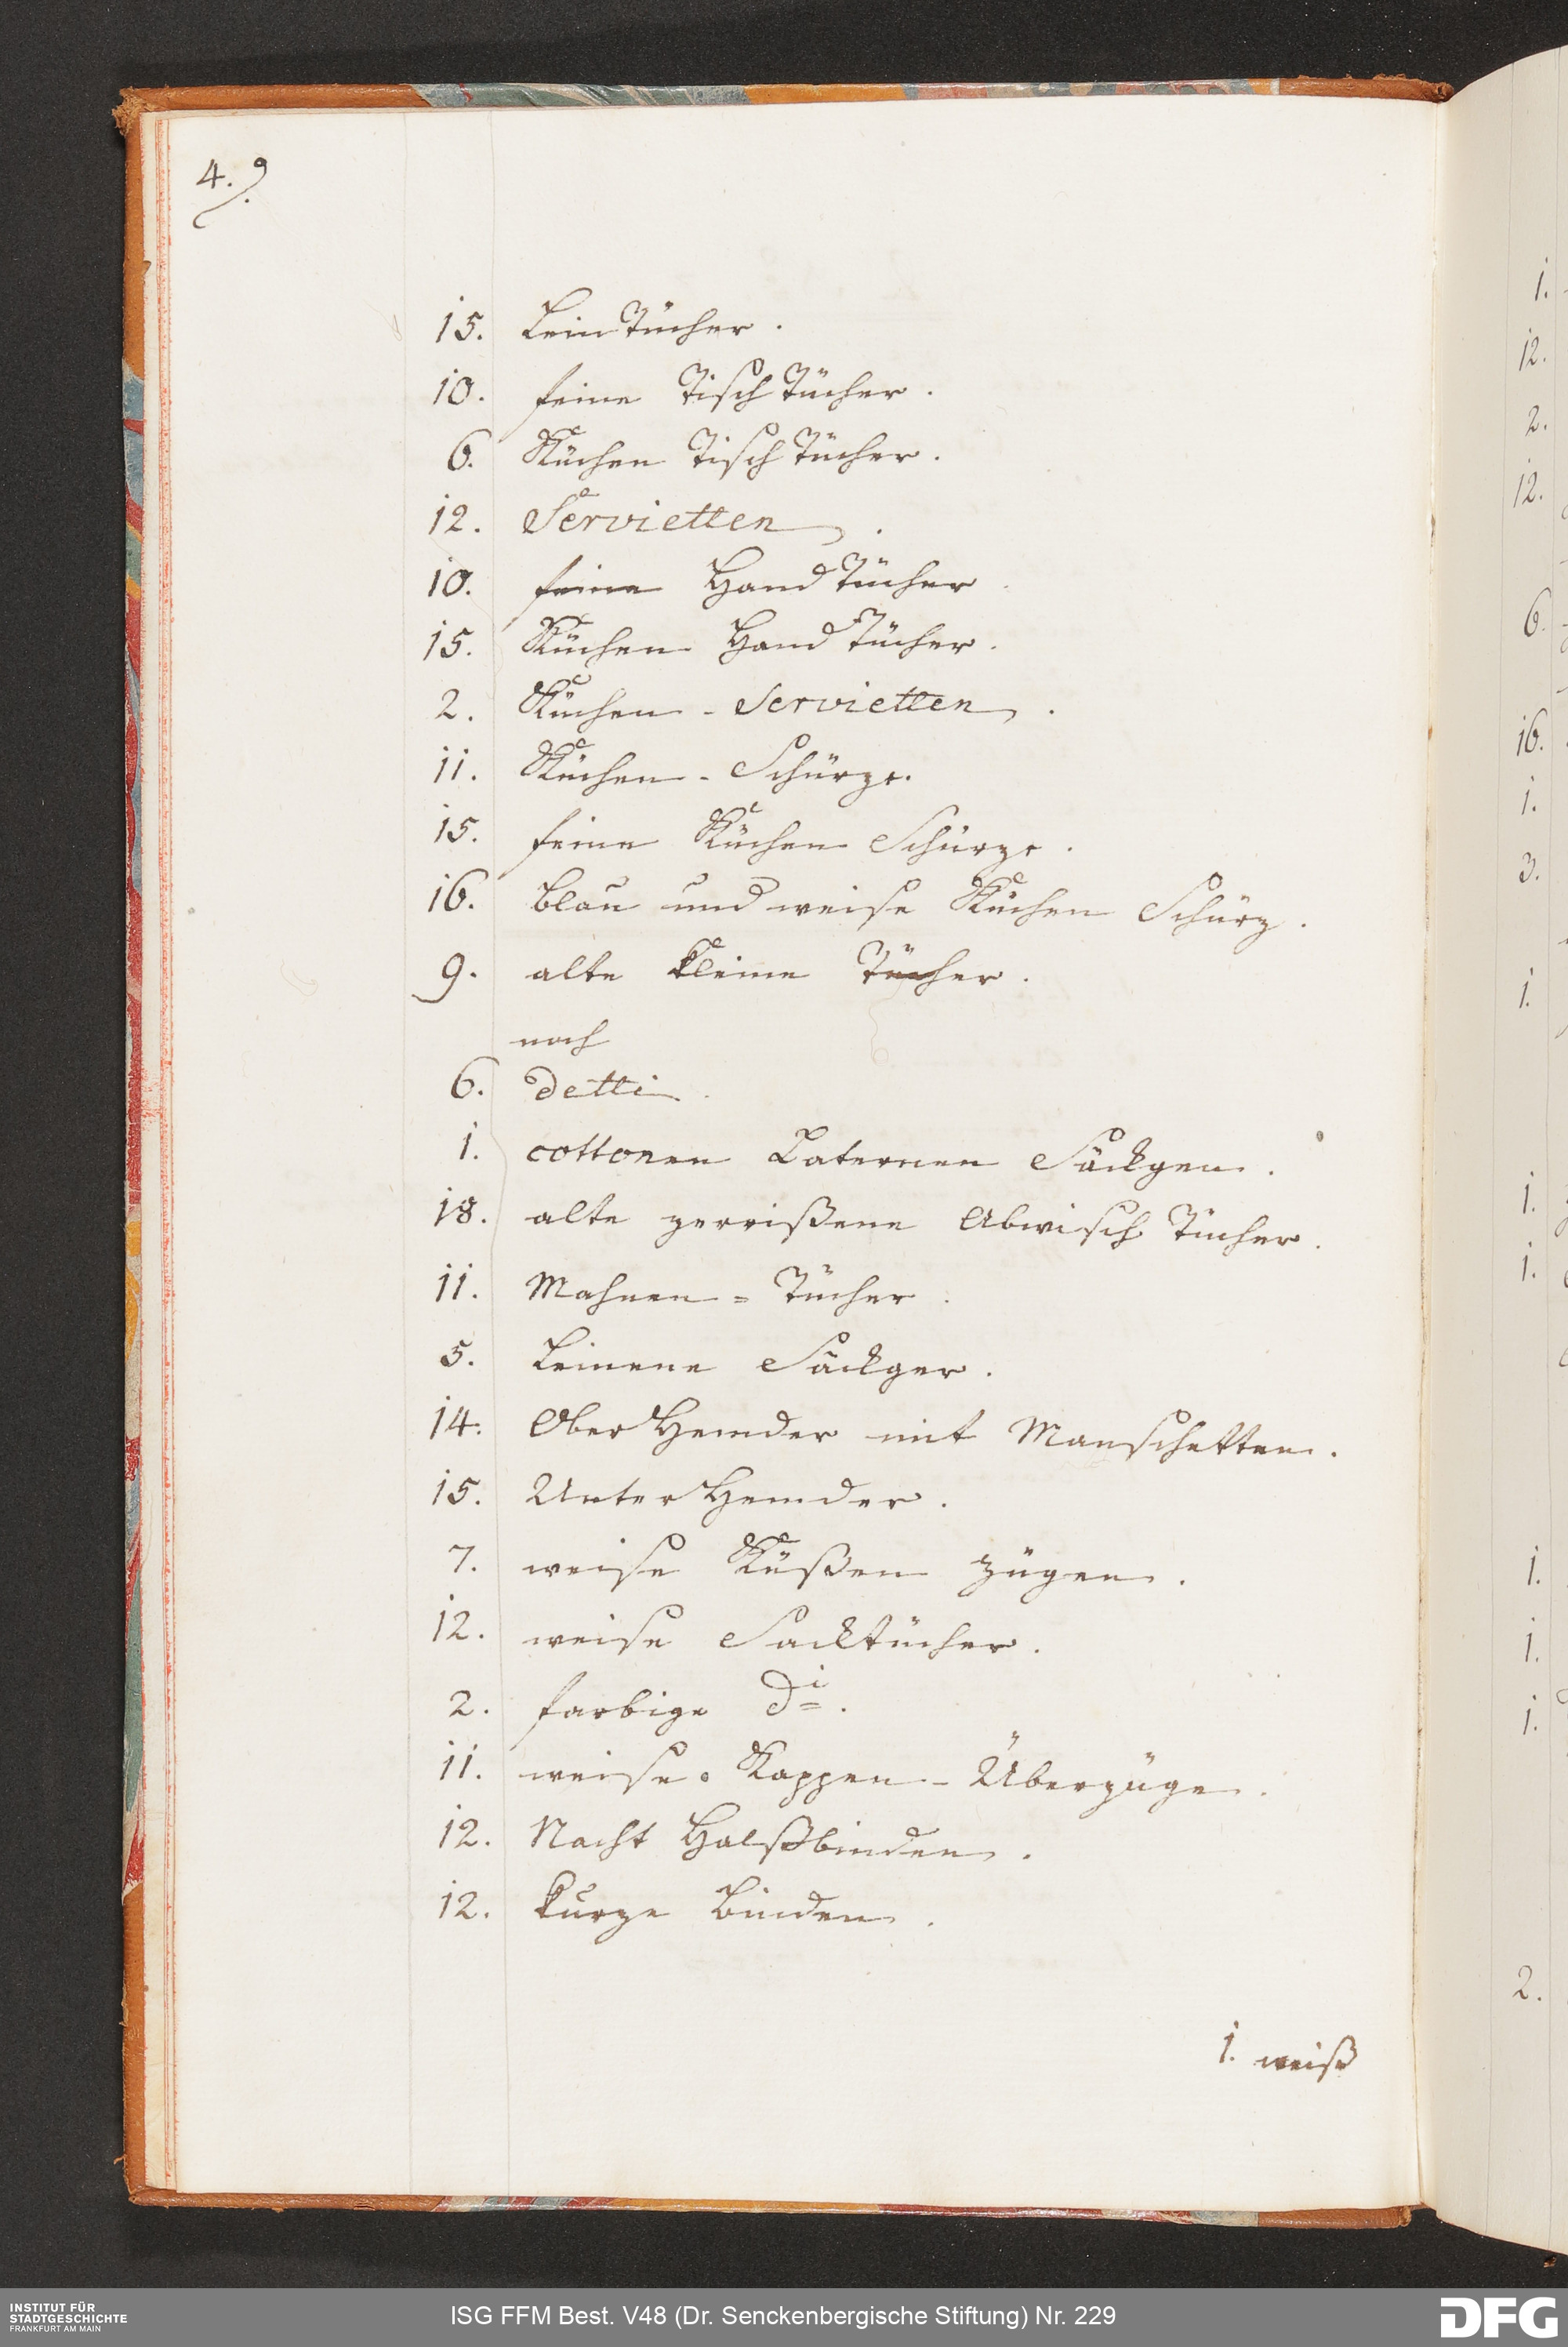 4.
15. LeinTücher.
10. feine TischTücher.
6. Küchen TischTücher.
12. Servietten.
10. feine HandTücher
15. Küchen HandTücher.
2. Küchen-Servietten.
11. Küchen-Schürze.
15. feine Küchen Schürze.
16. blau und weise Küchen Schürz.
9. alte kleine Tücher.
noch
6. detti.
1. cottonen Laternen Säckgen.
18. alte zerrißene Abwisch Tücher.
11. Mahnen=Tücher.
5. Leinene Säckger.
14. OberHemder mit Manschetten.
15. UnterHemder.
7. weise Küßen zügen.
12. weise Sacktücher.
2. farbige di.
11. weise Kappen-Überzüge.
12. Nacht Halßbinden.
12. kurze Binden.
1. weiß
1.
12.
2.
12.
6.
16.
1.
3.
1.
1.
1.
1.
1.
1.
2.
INSTITUT FÜR
STADTGESCHICHTE
FRANKFURT AM MAIN
ISG FFM Best. V48 (Dr. Senckenbergische Stiftung) Nr. 229
DFG